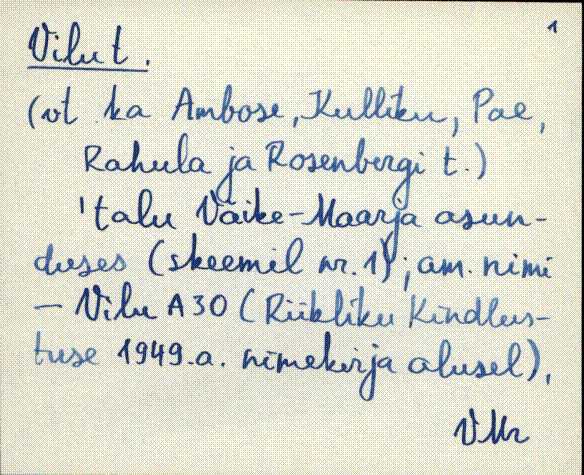 1
Vilu t.
(vt ka Ambose, Kulliku, Pae,
Rahula ja Rosenbergi t.)
'talu Väike-Maarja asun-
duses (skeemil nr. 1); am. nimi
– Vilu A30 (Riikliku Kindlus-
tuse 1949.a. nimekirja alusel),
VMr